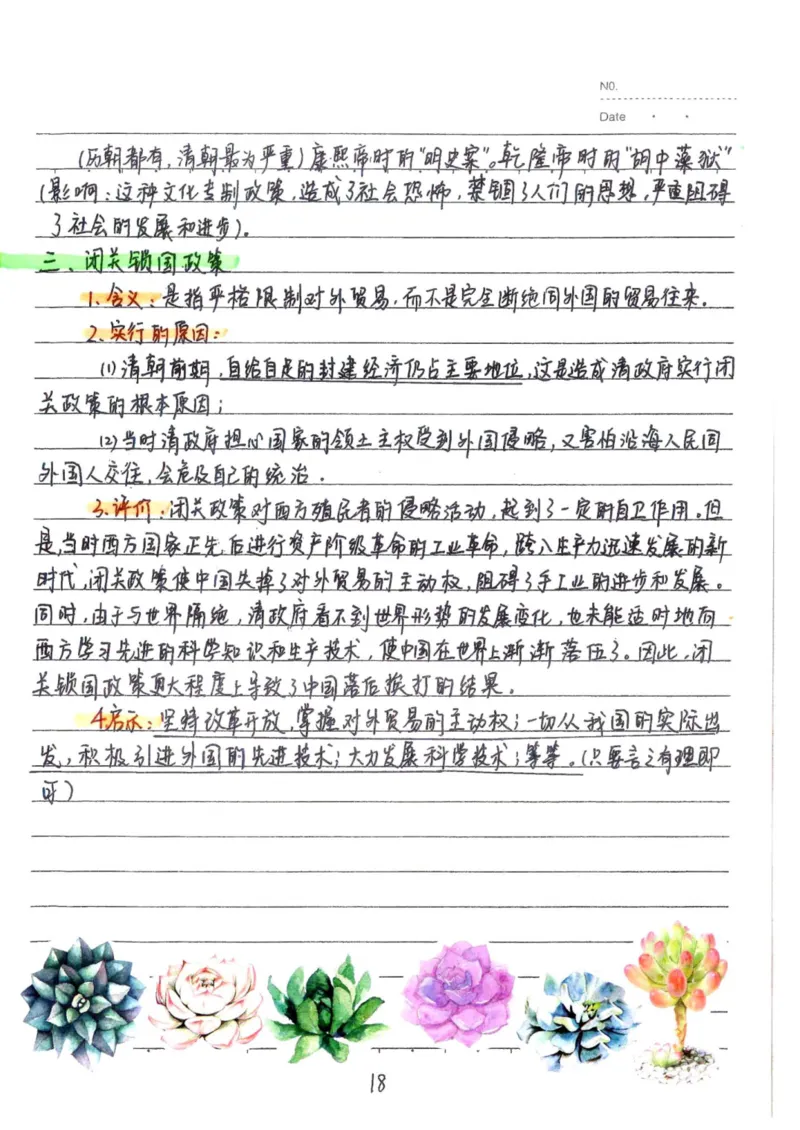 NO.
Date
(历朝都有,清朝最为严重)康熙帝时的"明史案"。乾隆帝时的"胡中藻狱"
(影响:这种文化专制政策,造成了社会恐怖,禁锢了人们的思想,严重阻碍
了社会的发展和进步)。
三、闭关锁国政策
1.含义:是指严格限制对外贸易,而不是完全断绝同外国的贸易往来。
2.实行的原因:
(1)清朝前期,自给自足的封建经济仍占主要地位,这是造成清政府实行闭
关政策的根本原因;
(2)当时清政府担心国家的领土主权受到外国侵略,又害怕沿海人民同
外国人交往,会危及自己的统治.
3.评价:闭关政策对西方殖民者的侵略活动,起到了一定的自卫作用。但
是,当时西方国家正先,后进行资产阶级革命的工业革命,跨入生产力迅速发展的新
时代,闭关政策使中国失掉了对外贸易的主动权,阻碍了手工业的进步和发展。
同时,由于与世界隔绝,清政府看不到世界形势的发展变化,也未能适时地向
西方学习先进的科学知识和生产技术,使中国在世界上渐渐落伍了。因此,闭
关锁国政策更大程度上导致了中国落后挨打的结果。
4启示:坚持改革开放,掌握对外贸易的主动权;一切从我国的实际出
发,积极引进外国的先进技术;大力发展科学技术;等等。(只要言之有理即
可)
18